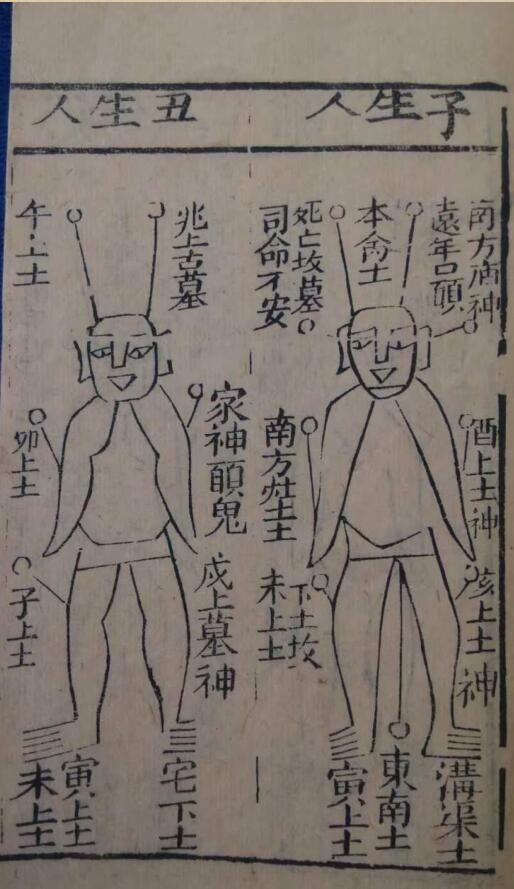 子生人
南方庙神
遠年口願
本命土
死亡坟墓
司命不安
酉上土神
南方灶土
亥上土神
下土坟
未上土
溝渠土
東南土
寅上土
丑生人
兆上古墓
午上土
家神願鬼
卯上土
戍上墓神
子上土
宅下土
寅上土
未上土